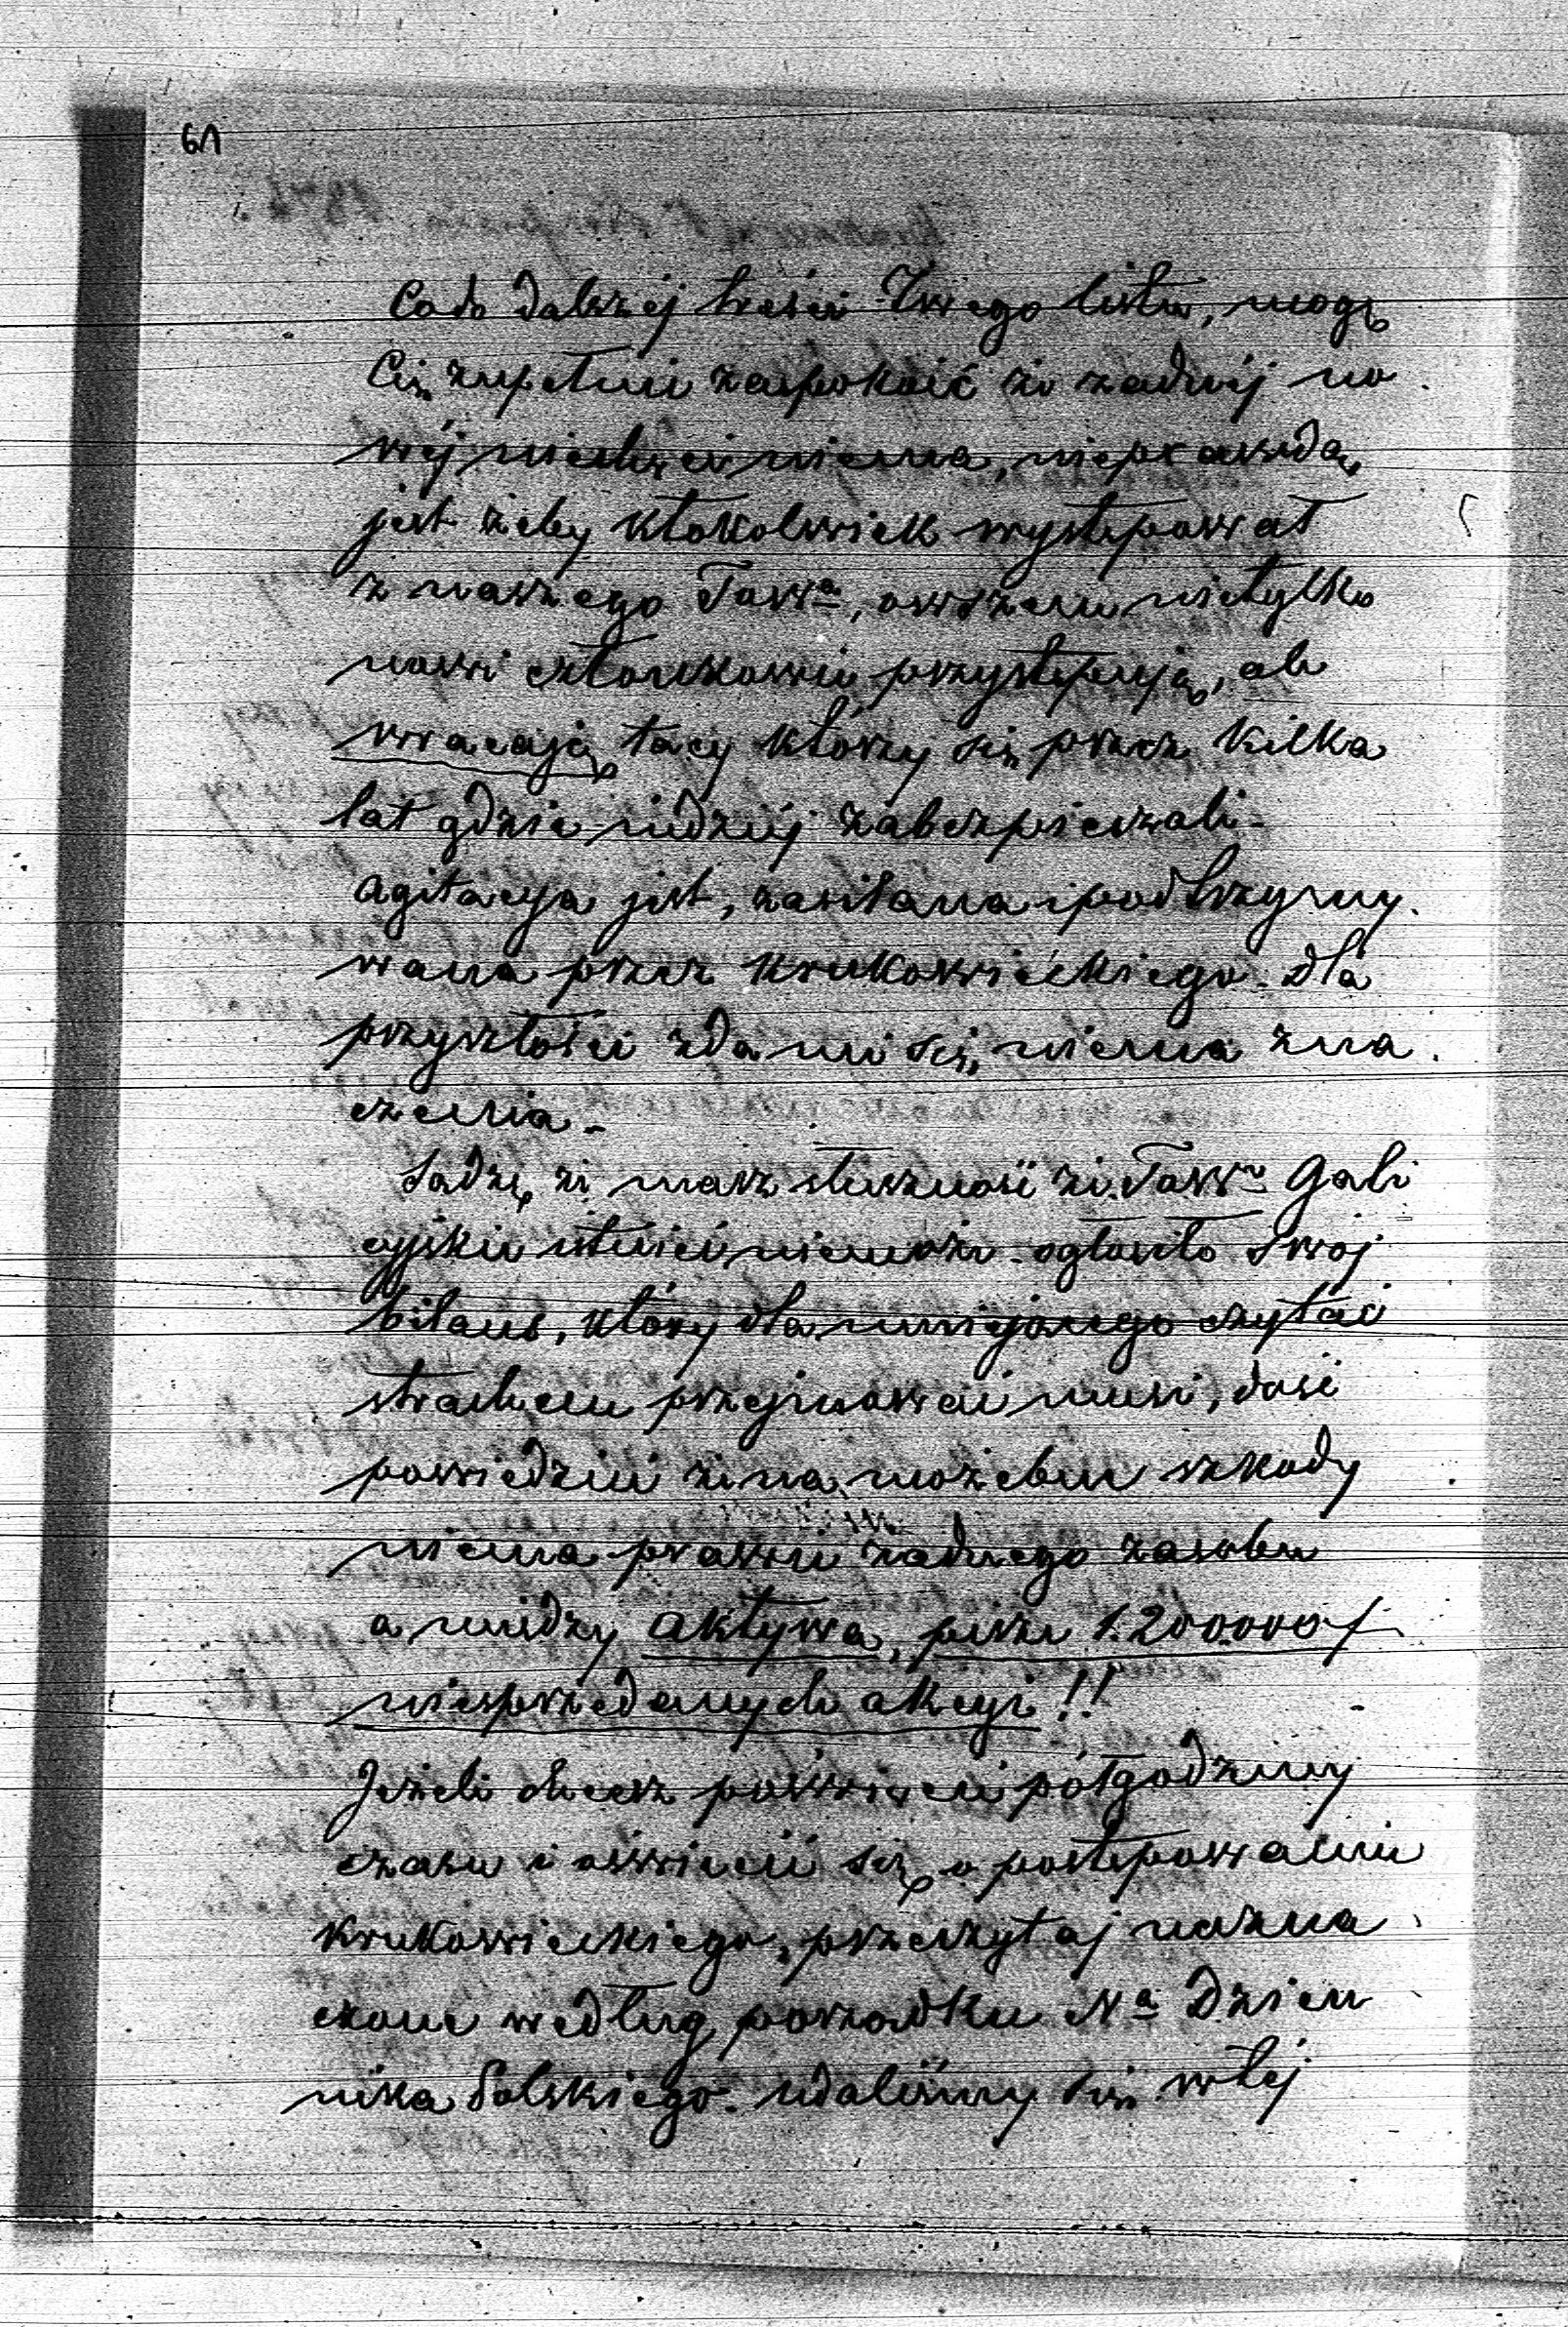 61
Co do dalszéj treści Twego listu, mogę
Cię zupełnie zaspokoić że żadnéj no
wéj niechęci niema, nieprawdą
jest żeby ktokolwiek występował
z naszego Towa, owszem nietylko
nowi członkowie przystępują, ale
wracają tacy którzy się przez kilka
lat gdzie indziéj zabezpieczali -
agitacya jest, zasilana i podtrzymy
wana przez Krukowieckiego. dla
przyszłości zda mi się niema zna
czenia -
Sądzę że masz słuszność że Towo Gali
cyjskie istnieć niemoże - ogłosiło swoj
bilans, który dla umiejącego czytać
strachem przejmować musi, dość
powiedzieć że na możebne szkody
niema prawie żadnego zasobu
a między aktywa, pisze 1.200.000 f
niesprzedanych akcyi!!
Jeżeli chcesz poświęcić półgodziny
czasu i oświecić się o postępowaniu
Krukowieckiego, przeczytaj nazna
czone według porządku Na Dzien
nika Polskiego. udaliśmy się w téj